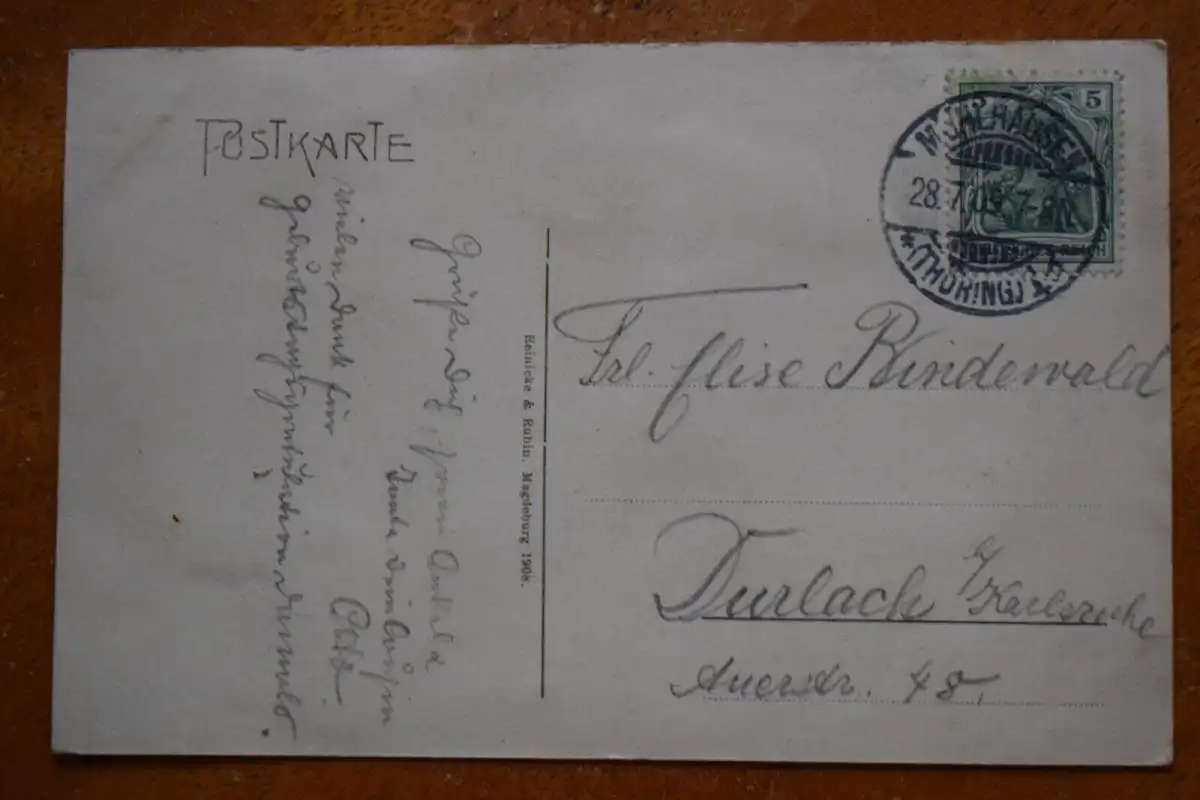 POSTKARTE
5
MÜHLHAUSEN
28.7.09. 7-8N.
*(THÜRING.)1
Frl. Elise Bindewald
Durlach b/Karlsruhe
Auerstr. 48.
Reinicke & Rubin, Magdeburg 1908.
Grüße Dich,
Cousin
Otto.
vielen Dank für
Geburtstagsgratulation